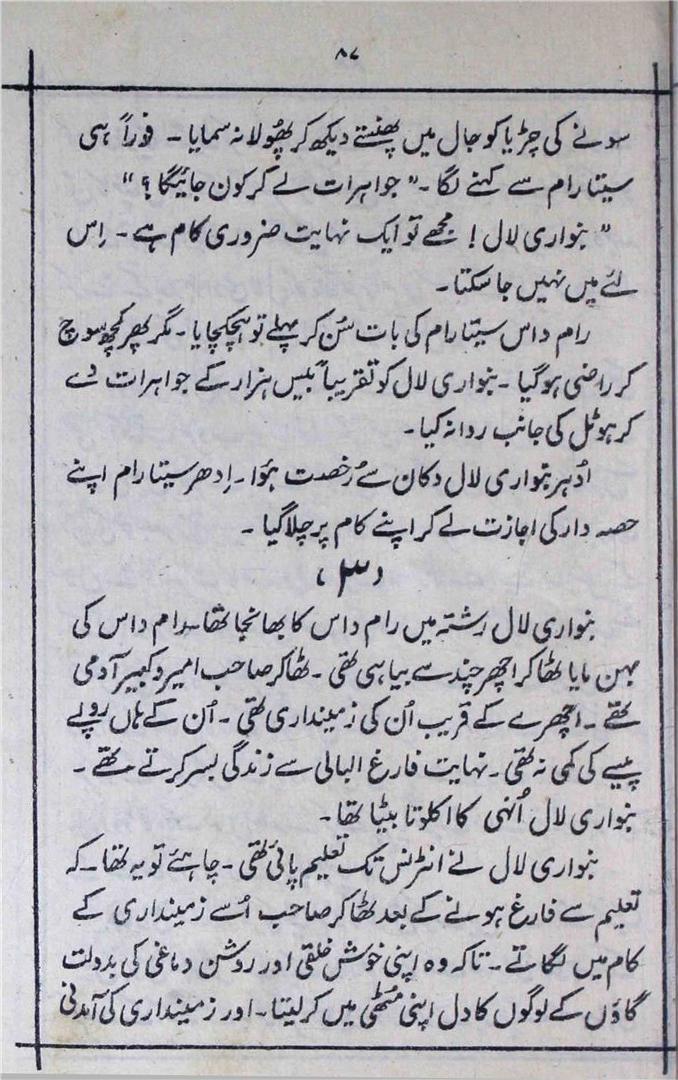 ۸۷
سونے کی چڑیا کو جال میں پھنستے دیکھ کر پھُولا نہ سمایا ۔ فوراً ہی
سیتا رام سے کہنے لگا ۔" جواہرات لے کر کون جائیگا ؟ "
" بنواری لال ! مجھے تو ایک نہایت ضروری کام ہے ۔ اِس
لئے میں نہیں جا سکتا ۔
رام داس سیتا رام کی بات سُن کر پہلے تو ہچکچایا ۔ مگر پھر کچھ سوچ
کر راضی ہو گیا ۔ بنواری لال کو تقریباً بیس ہزار کے جواہرات دے
کر ہوٹل کی جانب روانہ کیا ۔
اُدہر بنواری لال دکان سے رُخصت ہؤا ۔ اِدھر سیتا رام اپنے
حصہ دار کی اجازت لے کر اپنے کام پر چلا گیا ۔
(۳)
بنواری لال رشتہ میں رام داس کا بھانجا تھا ۔ رام داس کی
بہن مایا ٹھاکر اچھر چند سے بیاہی تھی ۔ ٹھاکر صاحب امیر و کبیر آدمی
تھے ۔ اچھرے کے قریب اُن کی زمینداری تھی ۔ اُن کے ہاں روپے
پیسے کی کمی نہ تھی ۔ نہایت فارغ البالی سے زندگی بسر کرتے تھے ۔
بنواری لال اُنہی کا اکلوتا بیٹا تھا ۔
بنواری لال نے انٹرنس تک تعلیم پائی تھی ۔ چاہئے تو یہ تھا ۔ کہ
تعلیم سے فارغ ہونے کے بعد ٹھاکر صاحب اُسے زمینداری کے
کام میں لگاتے ۔ تاکہ وہ اپنی خوش خلقی اور روشن دماغی کی بدولت
گاؤں کے لوگوں کا دل اپنی مُٹھی میں کر لیتا ۔ اور زمینداری کی آمدنی